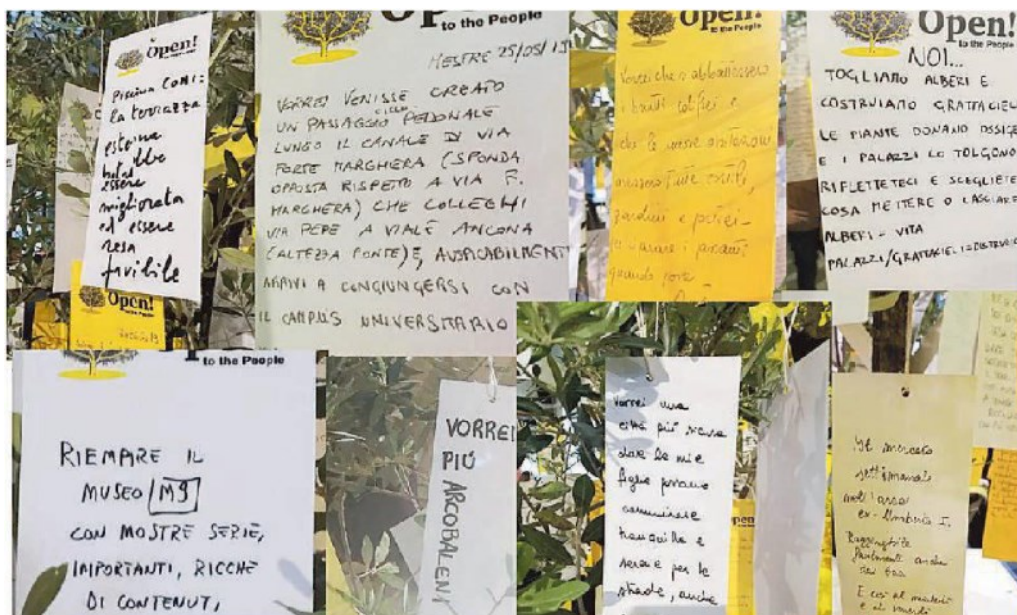 Open!
Piscina COMI:
la terrazza
esterna
potrebbe
essere
migliorata
ed essere
resa
fruibile
Open!
Open!
to the People
MESTRE 25/05/19
VORREI VENISSE CREATO
UN PASSAGGIO CICLO PEDONALE
LUNGO IL CANALE DI VIA
FORTE MARGHERA (SPONDA
OPPOSTA RISPETTO A VIA F.
MARGHERA) CHE COLLEGHI
VIA PEPE A VIALE ANCONA
(ALTEZZA PONTE) E, AUSPICABILMENT
ARRIVI A CONGIUNGERSI CON
IL CAMPUS UNIVERSITARIO
Open!
to the People
Vorrei che si abbattessero
i brutti edifici e
che le nuove costruzioni
avessero tutte
giardini e
quando
Open!
to the People
NOI...
TOGLIAMO ALBERI E
COSTRUIAMO GRATTACIEL
LE PIANTE DONANO OSSIGE
E I PALAZZI LO TOLGONO
RIFLETTETECI E SCEGLIETE
COSA METTERE O LASCIARE
ALBERI = VITA
PALAZZI/GRATTACIELI = DISTRUZIO
to the People
RIEMPIRE IL
MUSEO M9
CON MOSTRE SERIE,
IMPORTANTI, RICCHE
DI CONTENUTI,
VORREI
PIÚ
ARCOBALENI
Vorrei una
città più sicura
dove le mie
figlie possano
camminare
tranquille e
serene per le
strade, anche
Open!
Il mercato
settimanale
nell'area
ex-Umberto I.
Raggiungibile
facilmente anche
coi bus
E così al martedì
e al venerdì